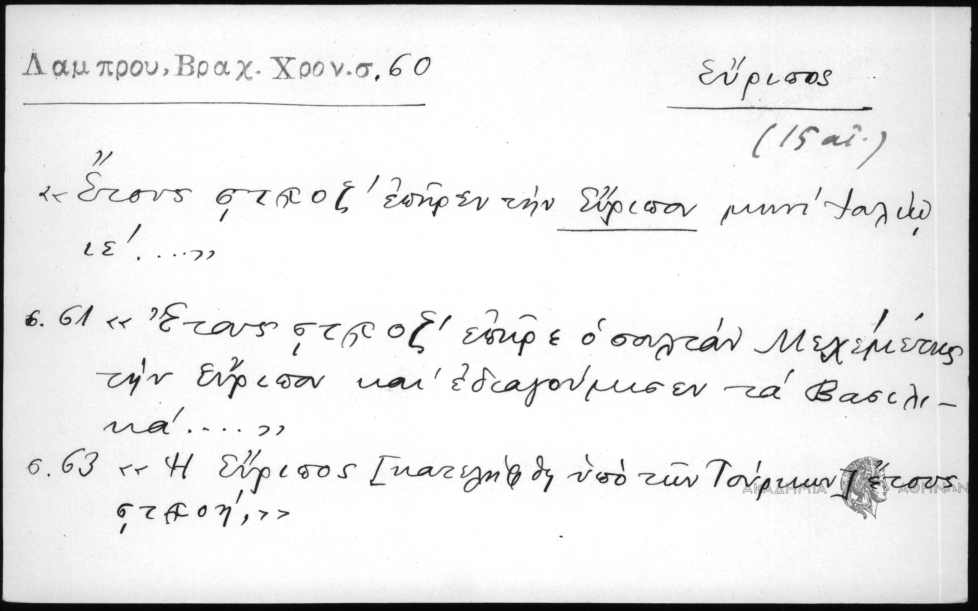 Λαμπρου, Βραχ. Χρον. σ. 60
Εὔριπος
(15 αἰ.)
«Ἔτους ςτϡοζ' ἐπῆρεν τὴν Εὔριπον μηνὶ
ιε'....»
σ. 61 «Ἔτους ςτϡοζ' ἐπῆρε ὁ σουλτάν Μεχεμέτης
τὴν Εὔριπον καὶ ἐδιαγούμισεν τὰ Βασιλι-
κά....»
σ. 63 «Ἡ Εὔριπος [κατελήφθη ὑπὸ τῶν Τούρκων] ἔτους
ςτϡοή,»
ΑΚΑΔΗΜΙΑ ΑΘΗΝΩΝ